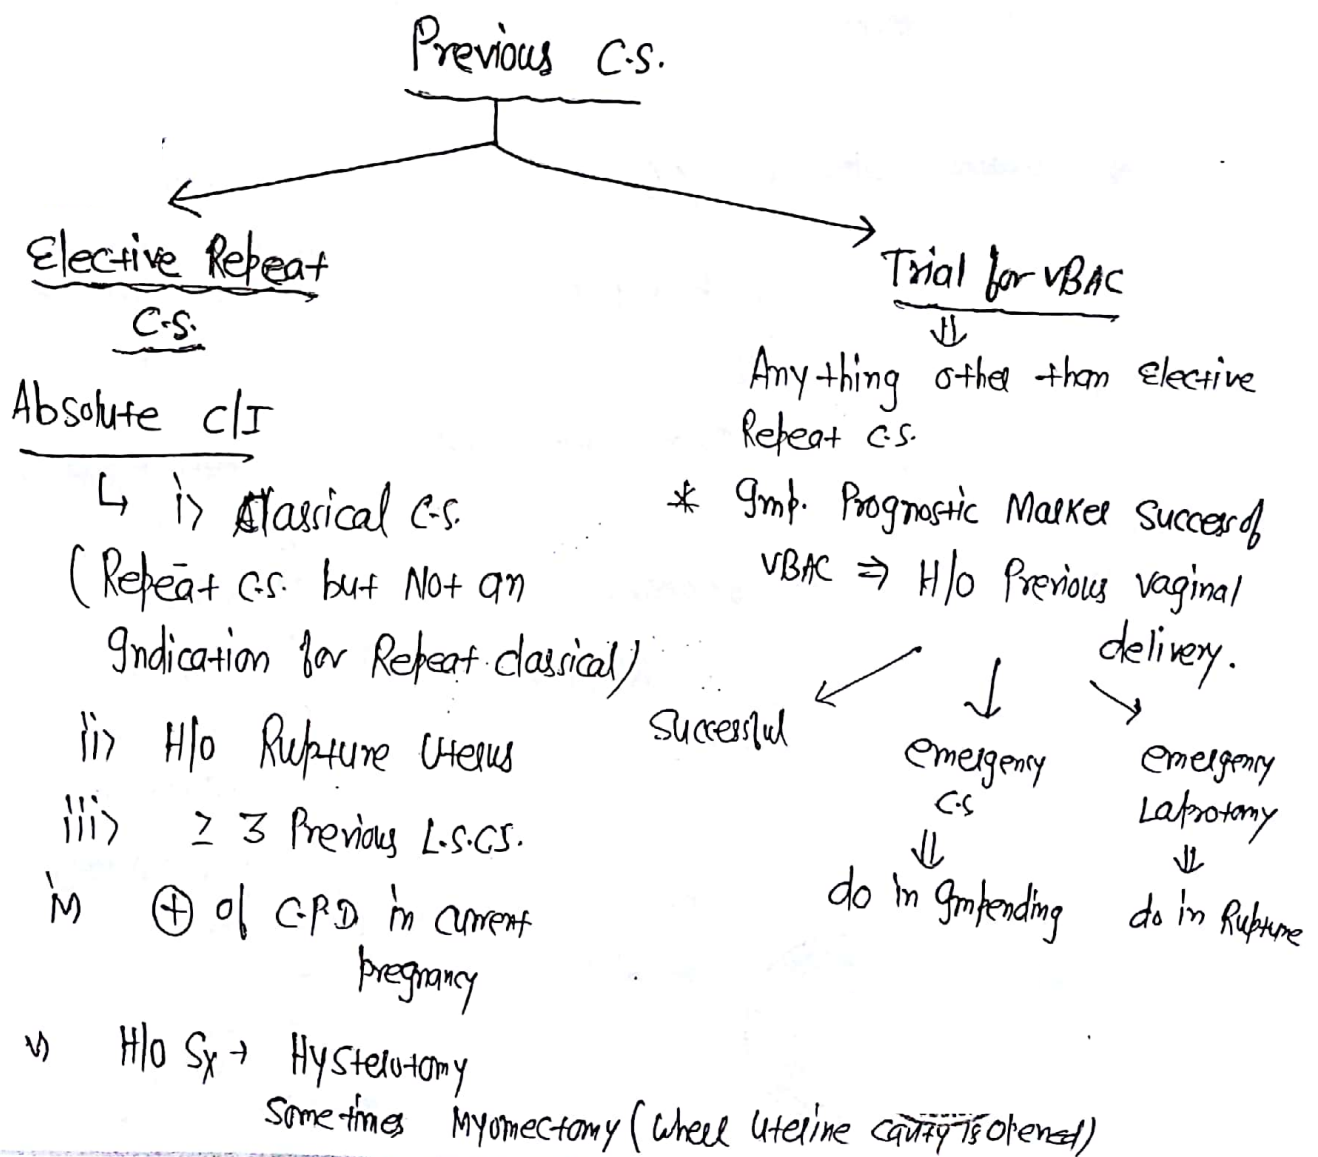 Previous C.S.
Elective Repeat
C.S.
Absolute C/I
↳ i> Classical C.S.
(Repeat C.S. but Not an
Indication for Repeat classical)
ii> H/o Rupture Uterus
iii> ≥ 3 Previous L.S.CS.
iv) ⊕ of C.P.D in current
pregnancy
v) H/o Sx → Hysterotomy
Sometimes Myomectomy (where uterine cavity is opened)
Trial for VBAC
⇓
Any thing other than Elective
Repeat C.S.
* Imp. Prognostic Marker Success of
VBAC ⇒ H/o Previous vaginal
delivery.
Successful
emergency
C.S
⇓
do in Impending
emergency
Laprotomy
⇓
do in Rupture